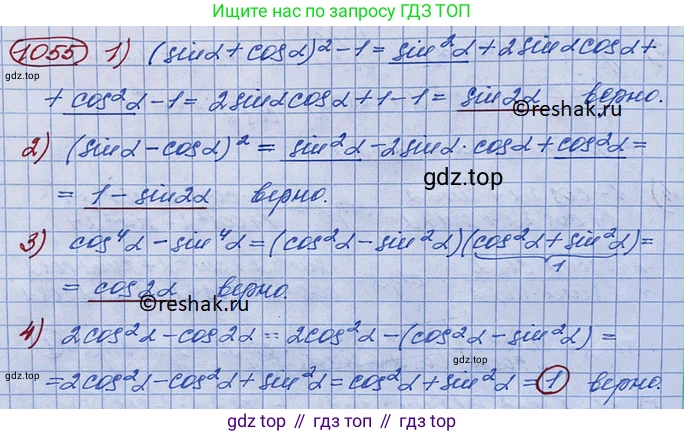 Ищите нас по запросу ГДЗ ТОП
1055 1) (sinα + cosα)² - 1 = sin²α + 2sinα cosα +
gdz.top
+ cos²α - 1 = 2sinα cosα + 1 - 1 = sin2α верно.
©reshak.ru
2) (sinα - cosα)² = sin²α - 2sinα · cosα + cos²α =
gdz.top
= 1 - sin2α верно.
3) cos⁴α - sin⁴α = (cos²α - sin²α)(cos²α + sin²α) =
1
= cos2α верно.
©reshak.ru
4) 2cos²α - cos2α = 2cos²α - (cos²α - sin²α) =
gdz.top
= 2cos²α - cos²α + sin²α = cos²α + sin²α = 1 верно.
гдз топ // гдз топ // гдз топ